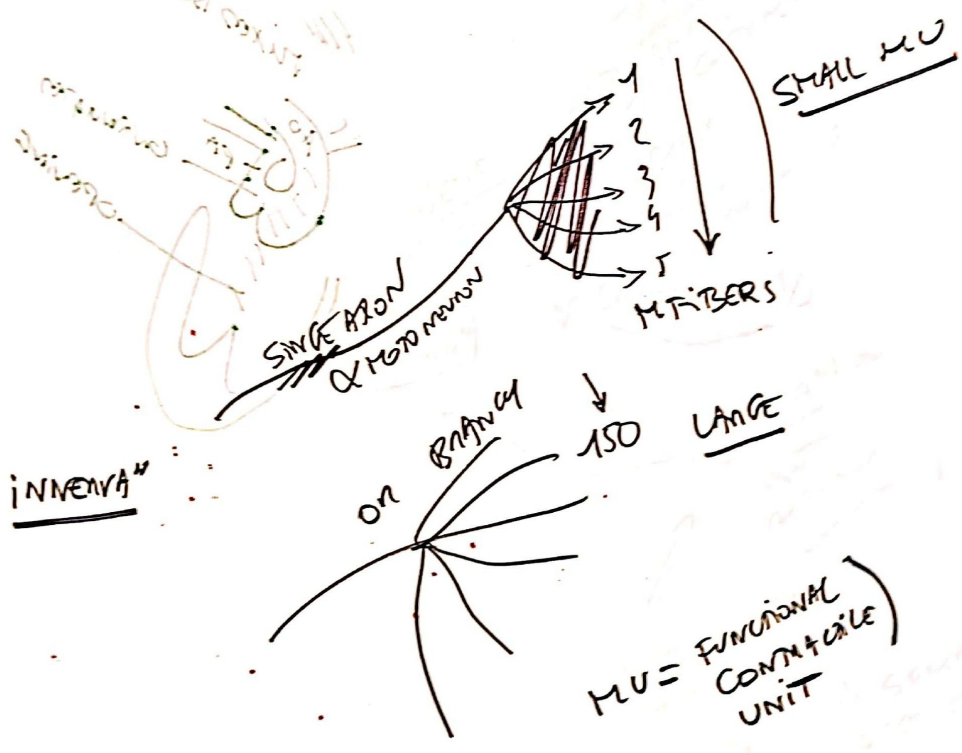 SMALL MU
1
2
3
4
5
M FIBERS
SINGE AXON
α MOTONEURON
OR BRANCH
150
LARGE
INNERVA"
MU = FUNCTIONAL
CONTRACTILE
UNIT